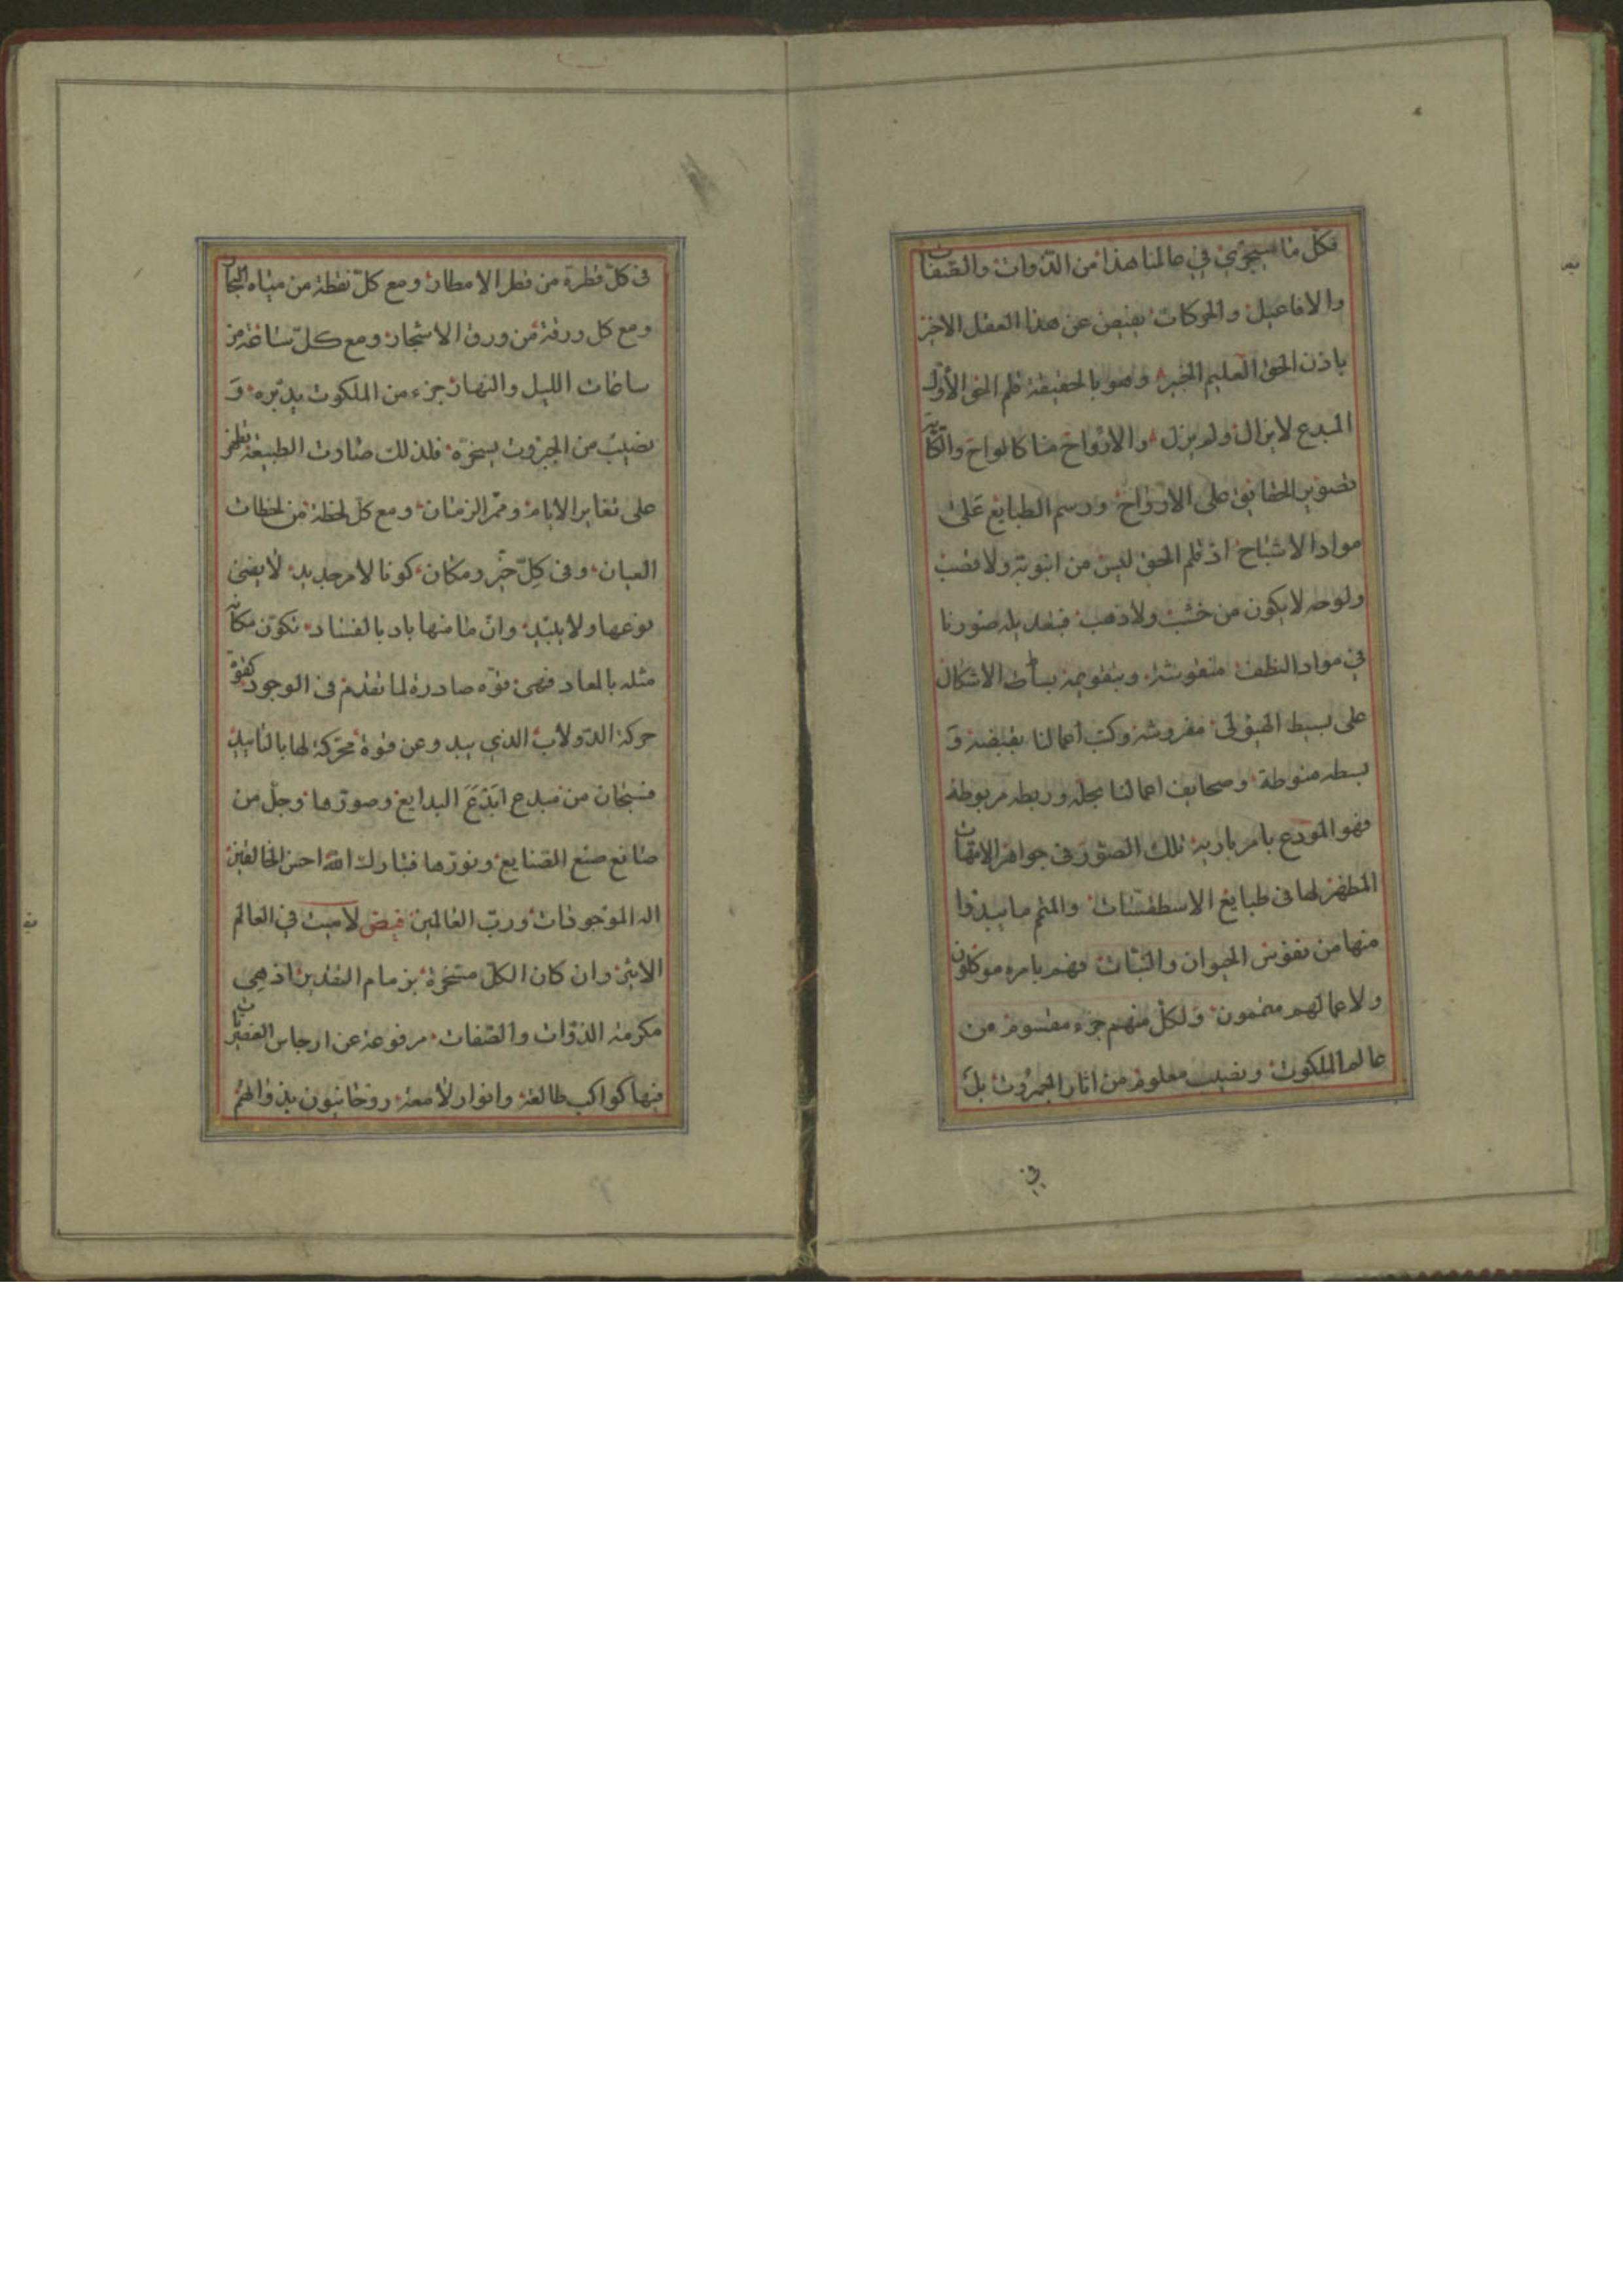 فكل ما سيجري في عالمنا هذا من الذوات والصفات
والافاعيل والحركات يفيض عن هذا العقل الاخير
باذن الحق العليم الخبير وهو بالحقيقة قلم الحق الأول
المبدع لايزال ولم يزل والارواح منا كالواح والكتابة
تصوير الحقايق على الارواح ورسم الطبايع على
مواد الاشباح اذ قلم الحق ليس من انبوبة ولا قصب
ولوحه لايكون من خشب ولا ذهب فبقديله صورنا
في مواد النطف منقوشة وبتقويمه بساط الاشكال
على بسيط الهيولى مفروشة وكتب أعمالنا بقبضه و
بسطه منوطة وصحايف اعمالنا بحله وربطه مربوطة
فهو المودع بامر باريه تلك الصور في جواهر الامهات
المظهر لها في طبايع الاسطقسات والمتم ما يبدوا
منها من نفوس الحيوان والنبات فهم بامره موكلون
ولاعمالهم مضمون ولكل منهم جزء مقسوم من
عالم الملكوت ونصيب معلوم من اثار الجبروت بل
في
في كل قطرة من قطر الامطار ومع كل نقطة من مياه البحار
ومع كل ورقة من ورق الاشجار ومع كل ساعة من
ساعات الليل والنهار جزء من الملكوت يدبره و
نصيب من الجبروت يسخره فلذلك صارت الطبيعة تظهر
على تغاير الايام وممر الزمان ومع كل لحظة من لحظات
العيان وفي كل حيز ومكان كونا لامر جديد لا يفنى
نوعها ولا يبيد وان ما منها باد بالفساد تكون مكانه
مثله بالمعاد فهي قوة صادرة لما تقدم في الوجود كقوة
حركة الدولاب الذي يبدو عن قوة محركة لها بالتاييد
فسبحان من مبدع ابدع البدايع وصورها وجل من
صانع صنع الصنايع ونورها فتبارك الله احسن الخالقين
اله الموجودات ورب العالمين فيض لا ميت في العالم
الاثير وان كان الكل مسخرة بزمام التقدير اذ هي
مكرمة الذوات والصفات مرفوعة عن ارجاس
فيها كواكب طالعة وانوار لامعة روحانيون بذواتهم